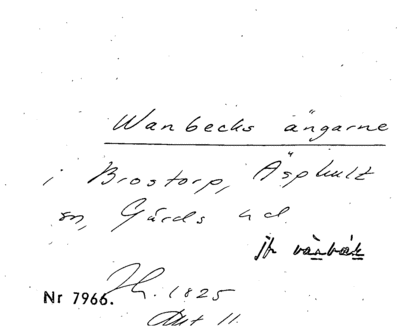 Wanbecks ängarne
i Brostorp, Äsphult
sn, Gärds hd
jfr vanbäk
Nr 7966. Jh. 1825
Akt 11.